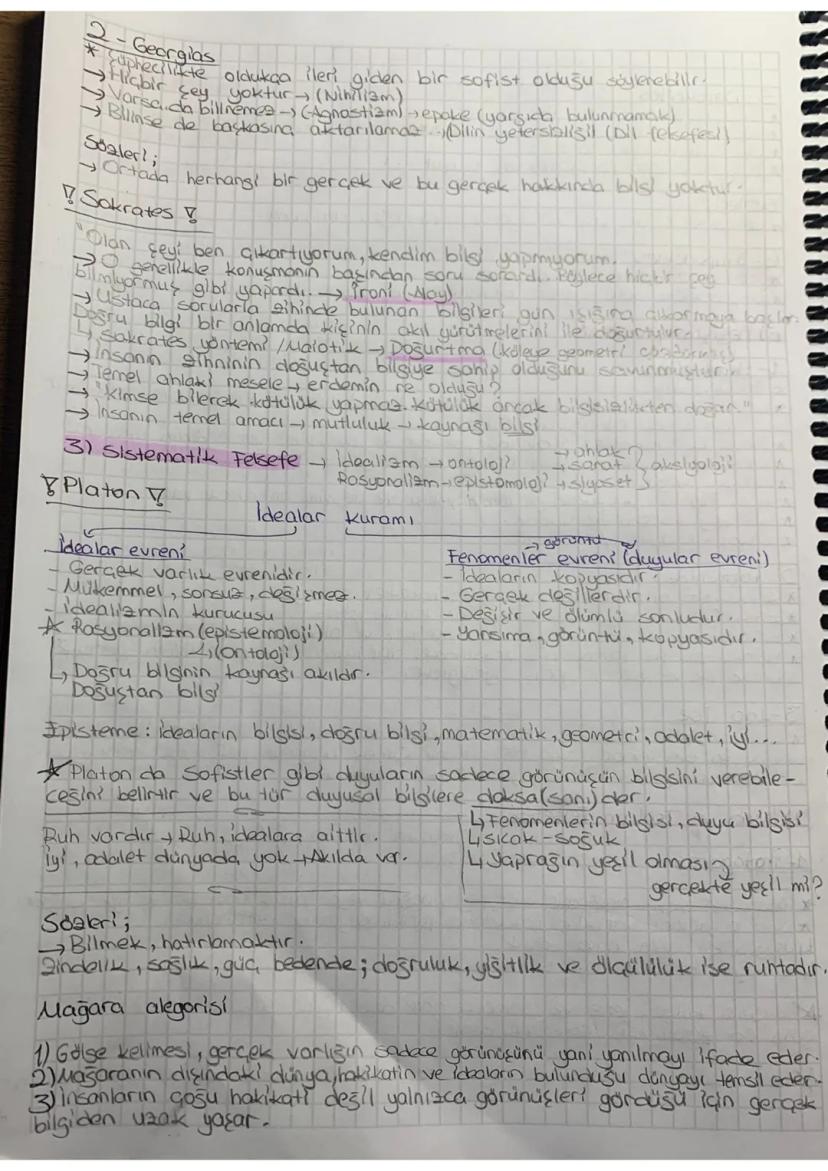 2 - Georgias
* Şüphecilikte oldukça ileri giden bir sofist olduğu söylenebilir.
→ Hiçbir şey yoktur → (Nihilizm)
→ Varsa da bilinemez → (Agnostizm) → epoke (yargıda bulunmamak)
→ Bilinse de başkasına aktarılamaz → Dilin yetersizliği! (Dil felsefesi)
Sözleri;
→ Ortada herhangi bir gerçek ve bu gerçek hakkında bilgi yoktur.
! Sokrates !
"Olan şeyi ben çıkartıyorum, kendim bilgi yapmıyorum.
→ O genellikle konuşmanın başından soru sorardı. Böylece hiçbir şey
bilmiyormuş gibi yapardı. → İroni (Alay)
→ Ustaca sorularla zihinde bulunan bilgileri gün ışığına çıkarmaya başlar.
Doğru bilgi bir anlamda kişinin akıl yürütmelerini ile doğurtulur.
↳ Sokrates yöntemi / Maiotik → Doğurtma (köleye geometri
→ İnsanın zihninin doğuştan bilgiye sahip olduğunu savunmuştur.
→ Temel ahlaki mesele → erdemin ne olduğu?
→ "Kimse bilerek kötülük yapmaz. Kötülük ancak bilgisizlikten doğar."
→ İnsanın temel amacı → mutluluk → kaynağı bilgi
3) Sistematik Felsefe → İdealizm → ontoloji → ahlak
Rasyonalizm → epistomoloji → sanat } aksiyoloji
→ siyaset
! Platon !
İdealar kuramı
İdealar evreni
- Gerçek varlık evrenidir.
- Mükemmel, sonsuz, değişmez.
- İdealizmin kurucusu
★ Rasyonalizm (epistemoloji)
↳ (ontoloji)
↳ Doğru bilginin kaynağı akıldır.
Doğuştan bilgi
→ görüntü
Fenomenler evreni (duyular evreni)
- İdeaların kopyasıdır.
- Gerçek değillerdir.
- Değişir ve ölümlü sonludur.
- Yansıma, görüntü, kopyasıdır.
Episteme : ideaların bilgisi, doğru bilgi, matematik, geometri, adalet, iyi...
★ Platon da Sofistler gibi duyuların sadece görünüşün bilgisini verebile-
ceğini belirtir ve bu tür duyusal bilgilere doksa (sanı) der.
Ruh vardır → Ruh, idealara aittir.
İyi, adalet dünyada yok → Akılda var.
↳ Fenomenlerin bilgisi, duyu bilgisi
↳ sıcak - soğuk
↳ Yaprağın yeşil olması
gerçekte yeşil mi?
Sözleri;
→ Bilmek, hatırlamaktır.
Zindelik, sağlık, güç bedende; doğruluk, yiğitlik ve ölçülülük ise ruhtadır.
Mağara alegorisi
1) Gölge kelimesi, gerçek varlığın sadece görünüşünü yani yanılmayı ifade eder.
2) Mağaranın dışındaki dünya, hakikatin ve ideaların bulunduğu dünyayı temsil eder.
3) İnsanların çoğu hakikati değil yalnızca görünüşleri gördüğü için gerçek
bilgiden uzak yaşar.